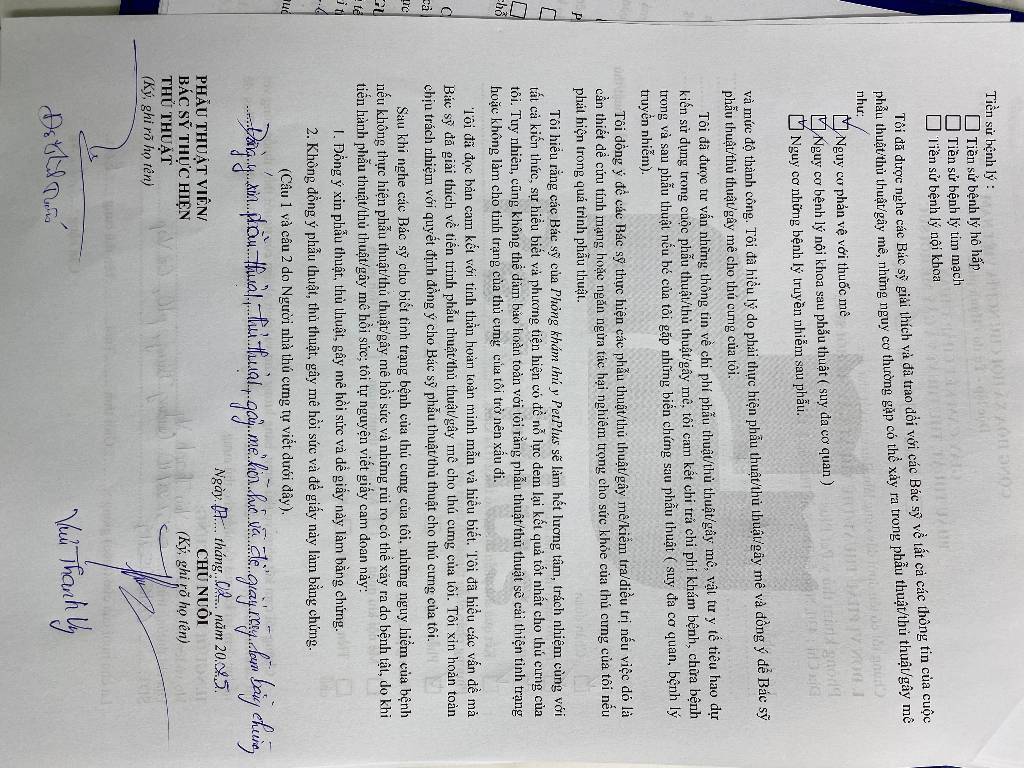 Tiền sử bệnh lý :
☐ Tiền sử bệnh lý hô hấp
☐ Tiền sử bệnh lý tim mạch
☐ Tiền sử bệnh lý nội khoa
Tôi đã được nghe các Bác sỹ giải thích và đã trao đổi với các Bác sỹ về tất cả các thông tin của cuộc
phẫu thuật/thủ thuật/gây mê, những nguy cơ thường gặp có thể xảy ra trong phẫu thuật/thủ thuật/gây mê
như:
☑ Nguy cơ phản vệ với thuốc mê
☑ Nguy cơ bệnh lý nội khoa sau phẫu thuật ( suy đa cơ quan )
☑ Nguy cơ những bệnh lý truyền nhiễm sau phẫu.
và mức độ thành công. Tôi đã hiểu lý do phải thực hiện phẫu thuật/thủ thuật/gây mê và đồng ý để Bác sỹ
phẫu thuật/thủ thuật/gây mê cho thú cưng của tôi.
Tôi đã được tư vấn những thông tin về chi phí phẫu thuật/thủ thuật/gây mê, vật tư y tế tiêu hao dự
kiến sử dụng trong cuộc phẫu thuật/thủ thuật/gây mê, tôi cam kết chi trả chi phí khám bệnh, chữa bệnh
trong và sau phẫu thuật nếu bé của tôi gặp những biến chứng sau phẫu thuật ( suy đa cơ quan, bệnh lý
truyền nhiễm).
Tôi đồng ý để các Bác sỹ thực hiện các phẫu thuật/thủ thuật/gây mê/kiểm tra/điều trị nếu việc đó là
cần thiết để cứu tính mạng hoặc ngăn ngừa tác hại nghiêm trọng cho sức khỏe của thú cưng của tôi nếu
phát hiện trong quá trình phẫu thuật.
Tôi hiểu rằng các Bác sỹ của Phòng khám thú y PetPlus sẽ làm hết lương tâm, trách nhiệm cùng với
tất cả kiến thức, sự hiểu biết và phương tiện hiện có để nỗ lực đem lại kết quả tốt nhất cho thú cưng của
tôi. Tuy nhiên, cũng không thể đảm bảo hoàn toàn với tôi rằng phẫu thuật/thủ thuật sẽ cải thiện tình trạng
hoặc không làm cho tình trạng của thú cưng của tôi trở nên xấu đi.
Tôi đã đọc bản cam kết với tinh thần hoàn toàn minh mẫn và hiểu biết. Tôi đã hiểu các vấn đề mà
Bác sỹ đã giải thích về tiến trình phẫu thuật/thủ thuật/gây mê cho thú cưng của tôi. Tôi xin hoàn toàn
chịu trách nhiệm với quyết định đồng ý cho Bác sỹ phẫu thuật/thủ thuật cho thú cưng của tôi.
Sau khi nghe các Bác sỹ cho biết tình trạng bệnh của thú cưng của tôi, những nguy hiểm của bệnh
nếu không thực hiện phẫu thuật/thủ thuật/gây mê hồi sức và những rủi ro có thể xảy ra do bệnh tật, do khi
tiến hành phẫu thuật/thủ thuật/gây mê hồi sức; tôi tự nguyện viết giấy cam đoan này:
1. Đồng ý xin phẫu thuật, thủ thuật, gây mê hồi sức và để giấy này làm bằng chứng.
2. Không đồng ý phẫu thuật, thủ thuật, gây mê hồi sức và để giấy này làm bằng chứng.
(Câu 1 và câu 2 do Người nhà thú cưng tự viết dưới đây).
Đồng ý xin phẫu thuật, thủ thuật, gây mê hồi sức và để giấy này làm bằng chứng
Ngày 07 tháng 02 năm 2025.
PHẪU THUẬT VIÊN/
BÁC SỸ THỰC HIỆN
THỦ THUẬT
(Ký, ghi rõ họ tên)
CHỦ NUÔI
(Ký, ghi rõ họ tên)
Vũ Thanh Vy